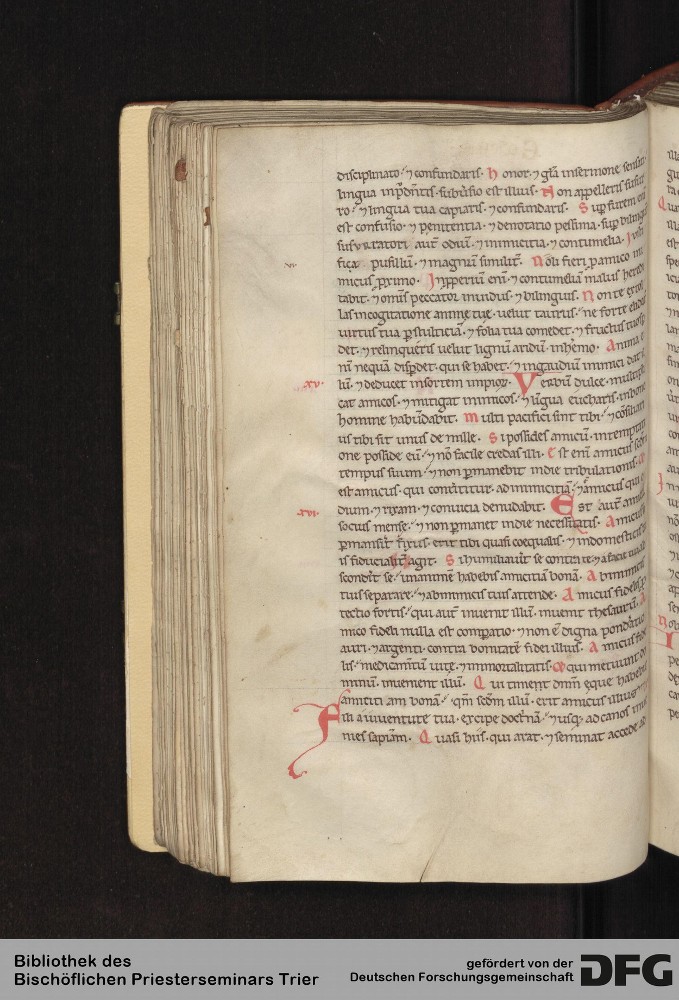 disciplinato ⁊ confundaris. honor ⁊ gl̄a in sermone sensati.
lingua inp̄dētis. subūsio est illius. Non appelleris susur
ro. ⁊ lingua tua capiaris. ⁊ confundaris. Sup̄ furem eni
est confusio. ⁊ penitentia. ⁊ denotatio pessima. sup̄ bilinguē
susurratori aut̄ odiū. ⁊ inimicitia. ⁊ contumelia. Iusti
fica pusillū. ⁊ magnū similit̄. Noli fieri p̄ amico ini
micus p̄ximo. Inp̄perium enī. ⁊ contumeliam malus heredi
tabit. ⁊ omīs peccator inuidus ⁊ bilinguis. Non te extol
las in cogitatione anime tue. uelut taurus. ne forte elidat̄
uirtus tua p̄ stulticiā. ⁊ folia tua comedet. ⁊ fructus tuos p̄
det. ⁊ relinqueris uelut lignū aridū. in h̄emo. Anima e
nī nequā disp̄det. qui se habet. ⁊ in gaudiū inimici dat il
xv. lū. ⁊ deducet in sortem impior̄. Verbū dulce. multipli
cat amicos. ⁊ mitigat inimicos. ⁊ lingua eucharis. in bono
homine habūdabit. Multi pacifici sint tibi. ⁊ cōsiliari
us tibi sit unus de mille. Si possides amicū. in temptati
one posside eū. ⁊ nō facile credas illi. Est enī amicus scdm
tempus suum. ⁊ non p̄manebit in die tribulationis. &
est amicus. qui conūtitur. ad inimicitiā. ⁊ amicus qui o
xvi. dium. ⁊ rixam. ⁊ conuicia denudabit. Est aut̄ amicus
socius mense. ⁊ non p̄manet in die necessitatis. Amicus
p̄manserit fixus. erit tibi quasi coequalis. ⁊ in domesticis tu
is fiducialit̄ aget. Si humiliauit̄ se contra te. ⁊ a facie tua ab
scondit̄ se. unanimē habebis amicitiā bonā. Ab inimicis
tuis separare. ⁊ ab inimicis tuis attende. Amicus fidelis p̄
tectio fortis. qui aut̄ inuenit illū. inuenit thesaurū. A
mico fideli nulla est comparatio. ⁊ non ē digna ponderatio
auri. ⁊ argenti. contra bonitatē fidei illius. Amicus fide
lis. medicamtū uite. ⁊ immortalitatis. & qui metuunt do
minū. inuenient illū. Qui timent dnm̄ eque habebit
amiciti am bonā. qm̄ scdm illū. erit amicus illius.
Fili a iuuentute tua. excipe doctrnā. ⁊ usq; ad canos inue
nies sapiam. Quasi his. qui arat. ⁊ seminat accede ad
Bibliothek des
Bischöflichen Priesterseminars Trier
gefördert von der
Deutschen Forschungsgemeinschaft
DFG